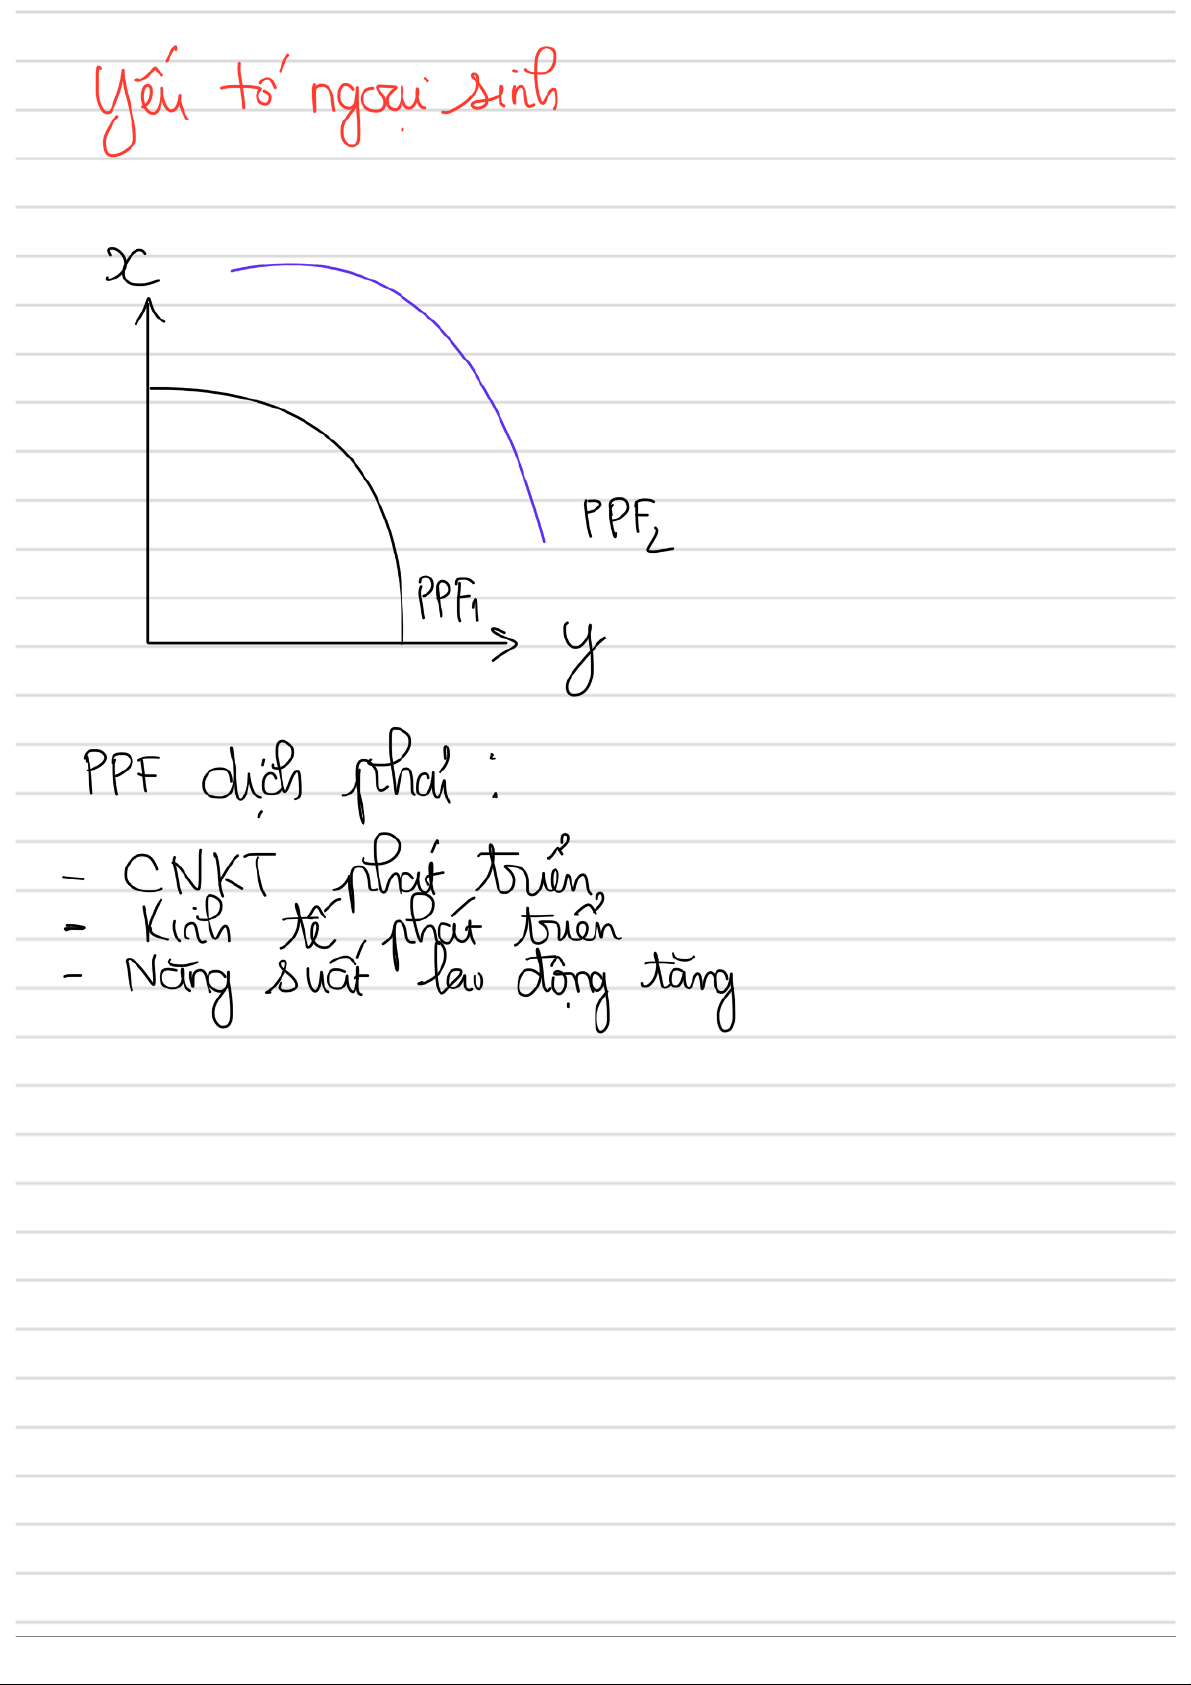 Yếu tố ngoại sinh
x
PPF2
PPF1
y
PPF dịch phải :
- CNKT phát triển
- Kinh tế phát triển
- Năng suất lao động tăng